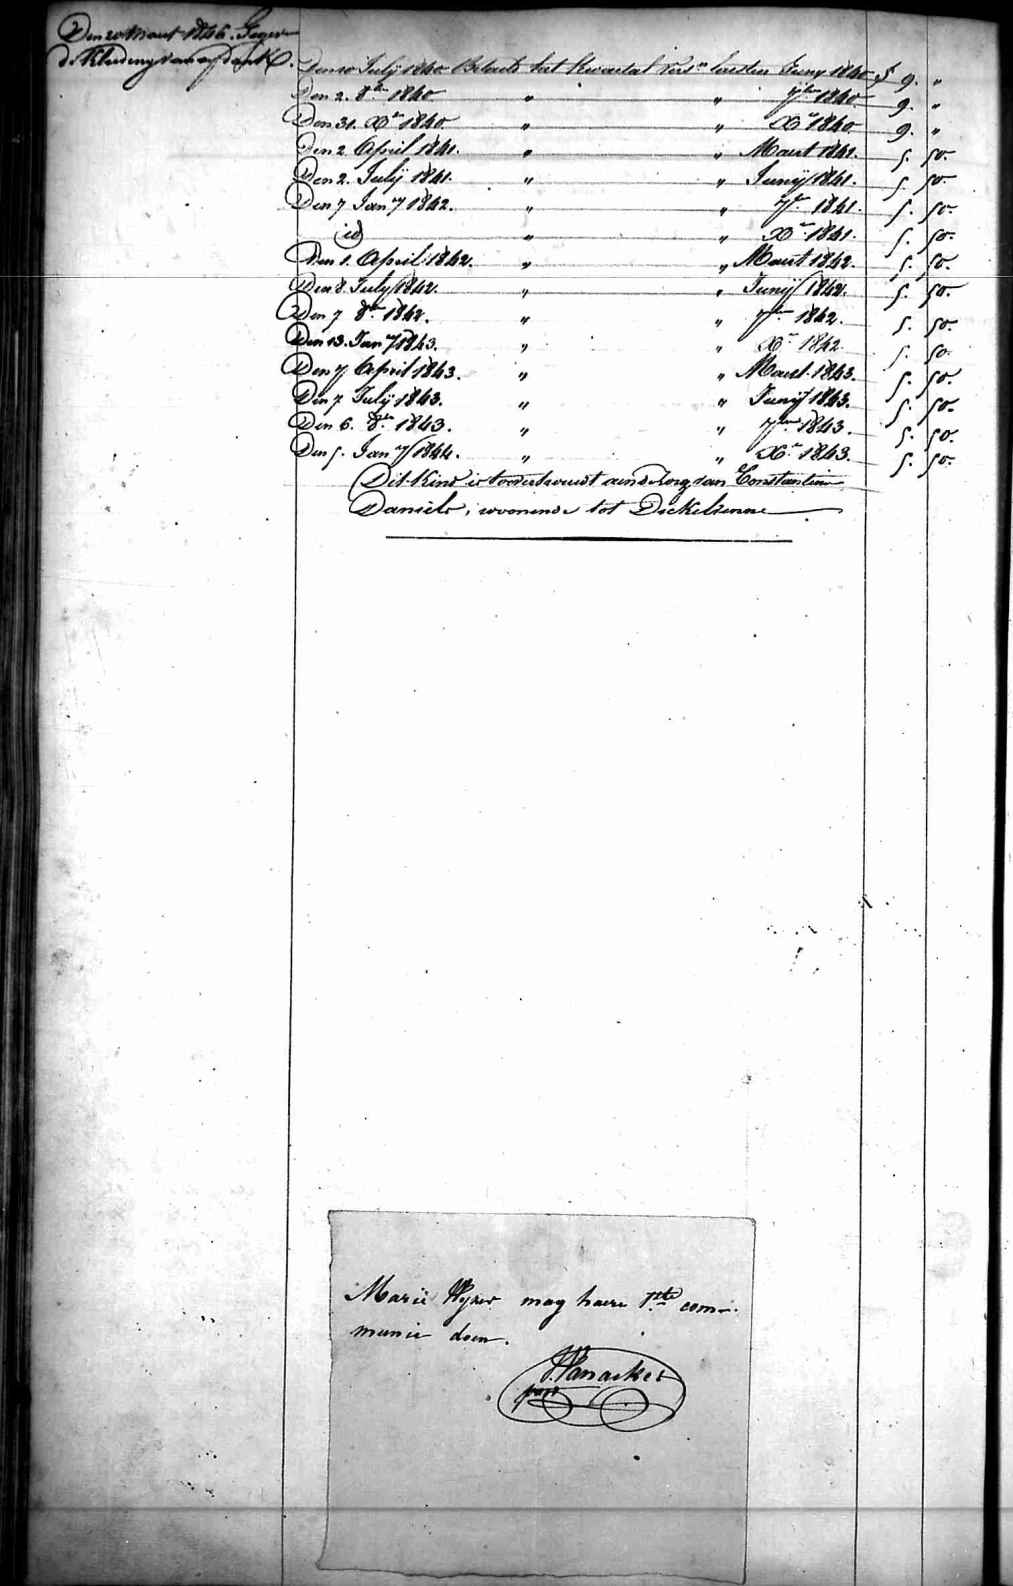 Den 20 Maart 1846. Gegeven
de Kleeding van
Den 10 July 1840. Betaald het Kwartal vers.n laesten Juny 1840 f 9. "
Den 2. 8.br 1840 " " 7.br 1840 9. "
Den 31. X.br 1840 " " X.br 1840 9. "
Den 2. April 1841. " " Maart 1841. 5. 50.
Den 2. Julij 1841. " " Junij 1841. 5. 50.
Den 7 Jan.y 1842. " " 7.br 1841. 5. 50.
id " " X.br 1841. 5. 50.
Den 1. April 1842. " " Maart 1842. 5. 50.
Den 8. July 1842. " " Junij 1842. 5. 50.
Den 7 8.br 1842. " " 7.br 1842. 5. 50.
Den 13. Jan.y 1843. " " X.br 1842 5. 50.
Den 7 April 1843. " " Maart 1843. 5. 50.
Den 7 Julij 1843. " " Junij 1843. 5. 50.
Den 6. 8.br 1843. " " 7.br 1843. 5. 50.
Den 5. Jan.y 1844. " " X.br 1843. 5. 50.
Dit Kind is toevertrouwdt aen de Zorg van Constantin
Daniels, woonende tot Dickelvenne
Marie Wyzer mag haere 1ste com-
munie doen.
J. Vanacker
past